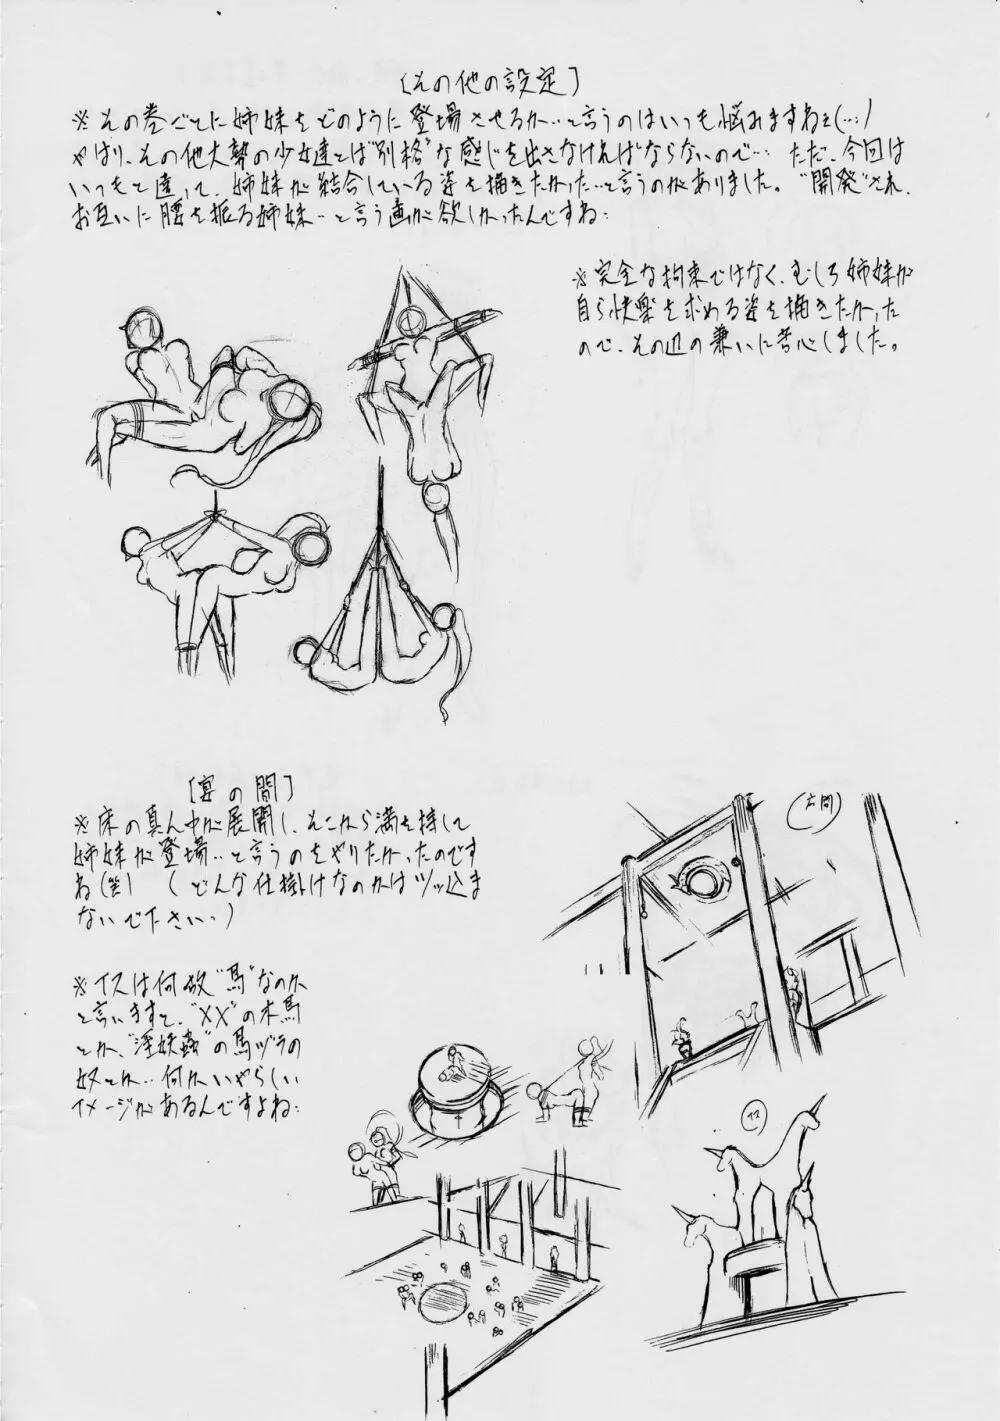 [その他の設定]
※その巻ごとに姉妹をどのように登場させるか…と言うのはいつも悩みますねェ(…)
やはり、その他大勢の少女達とは"別格"な感じを出さなければならないので… ただ、今回は
いつもと違って、姉妹が結合している姿を描きたかった…と言うのがありました。"開発"され、
お互いに腰を振る姉妹…と言う画が欲しかったんですね…
※完全な拘束ではなく、むしろ姉妹が
自ら快楽を求める姿を描きたかった
ので、その辺の兼いに苦心しました。
[宴の間]
※床の真ん中が展開し、そこから満を持して
姉妹が登場…と言うのをやりたかったのです
ね(笑) (どんな仕掛けなのかはツッ込ま
ないで下さい…)
※イスは何故"馬"なのか
と言いますと、"XX"の木馬
とか、"淫妖蟲"の馬ヅラの
奴とか…何かいやらしい
イメージがあるんですよね…
イス